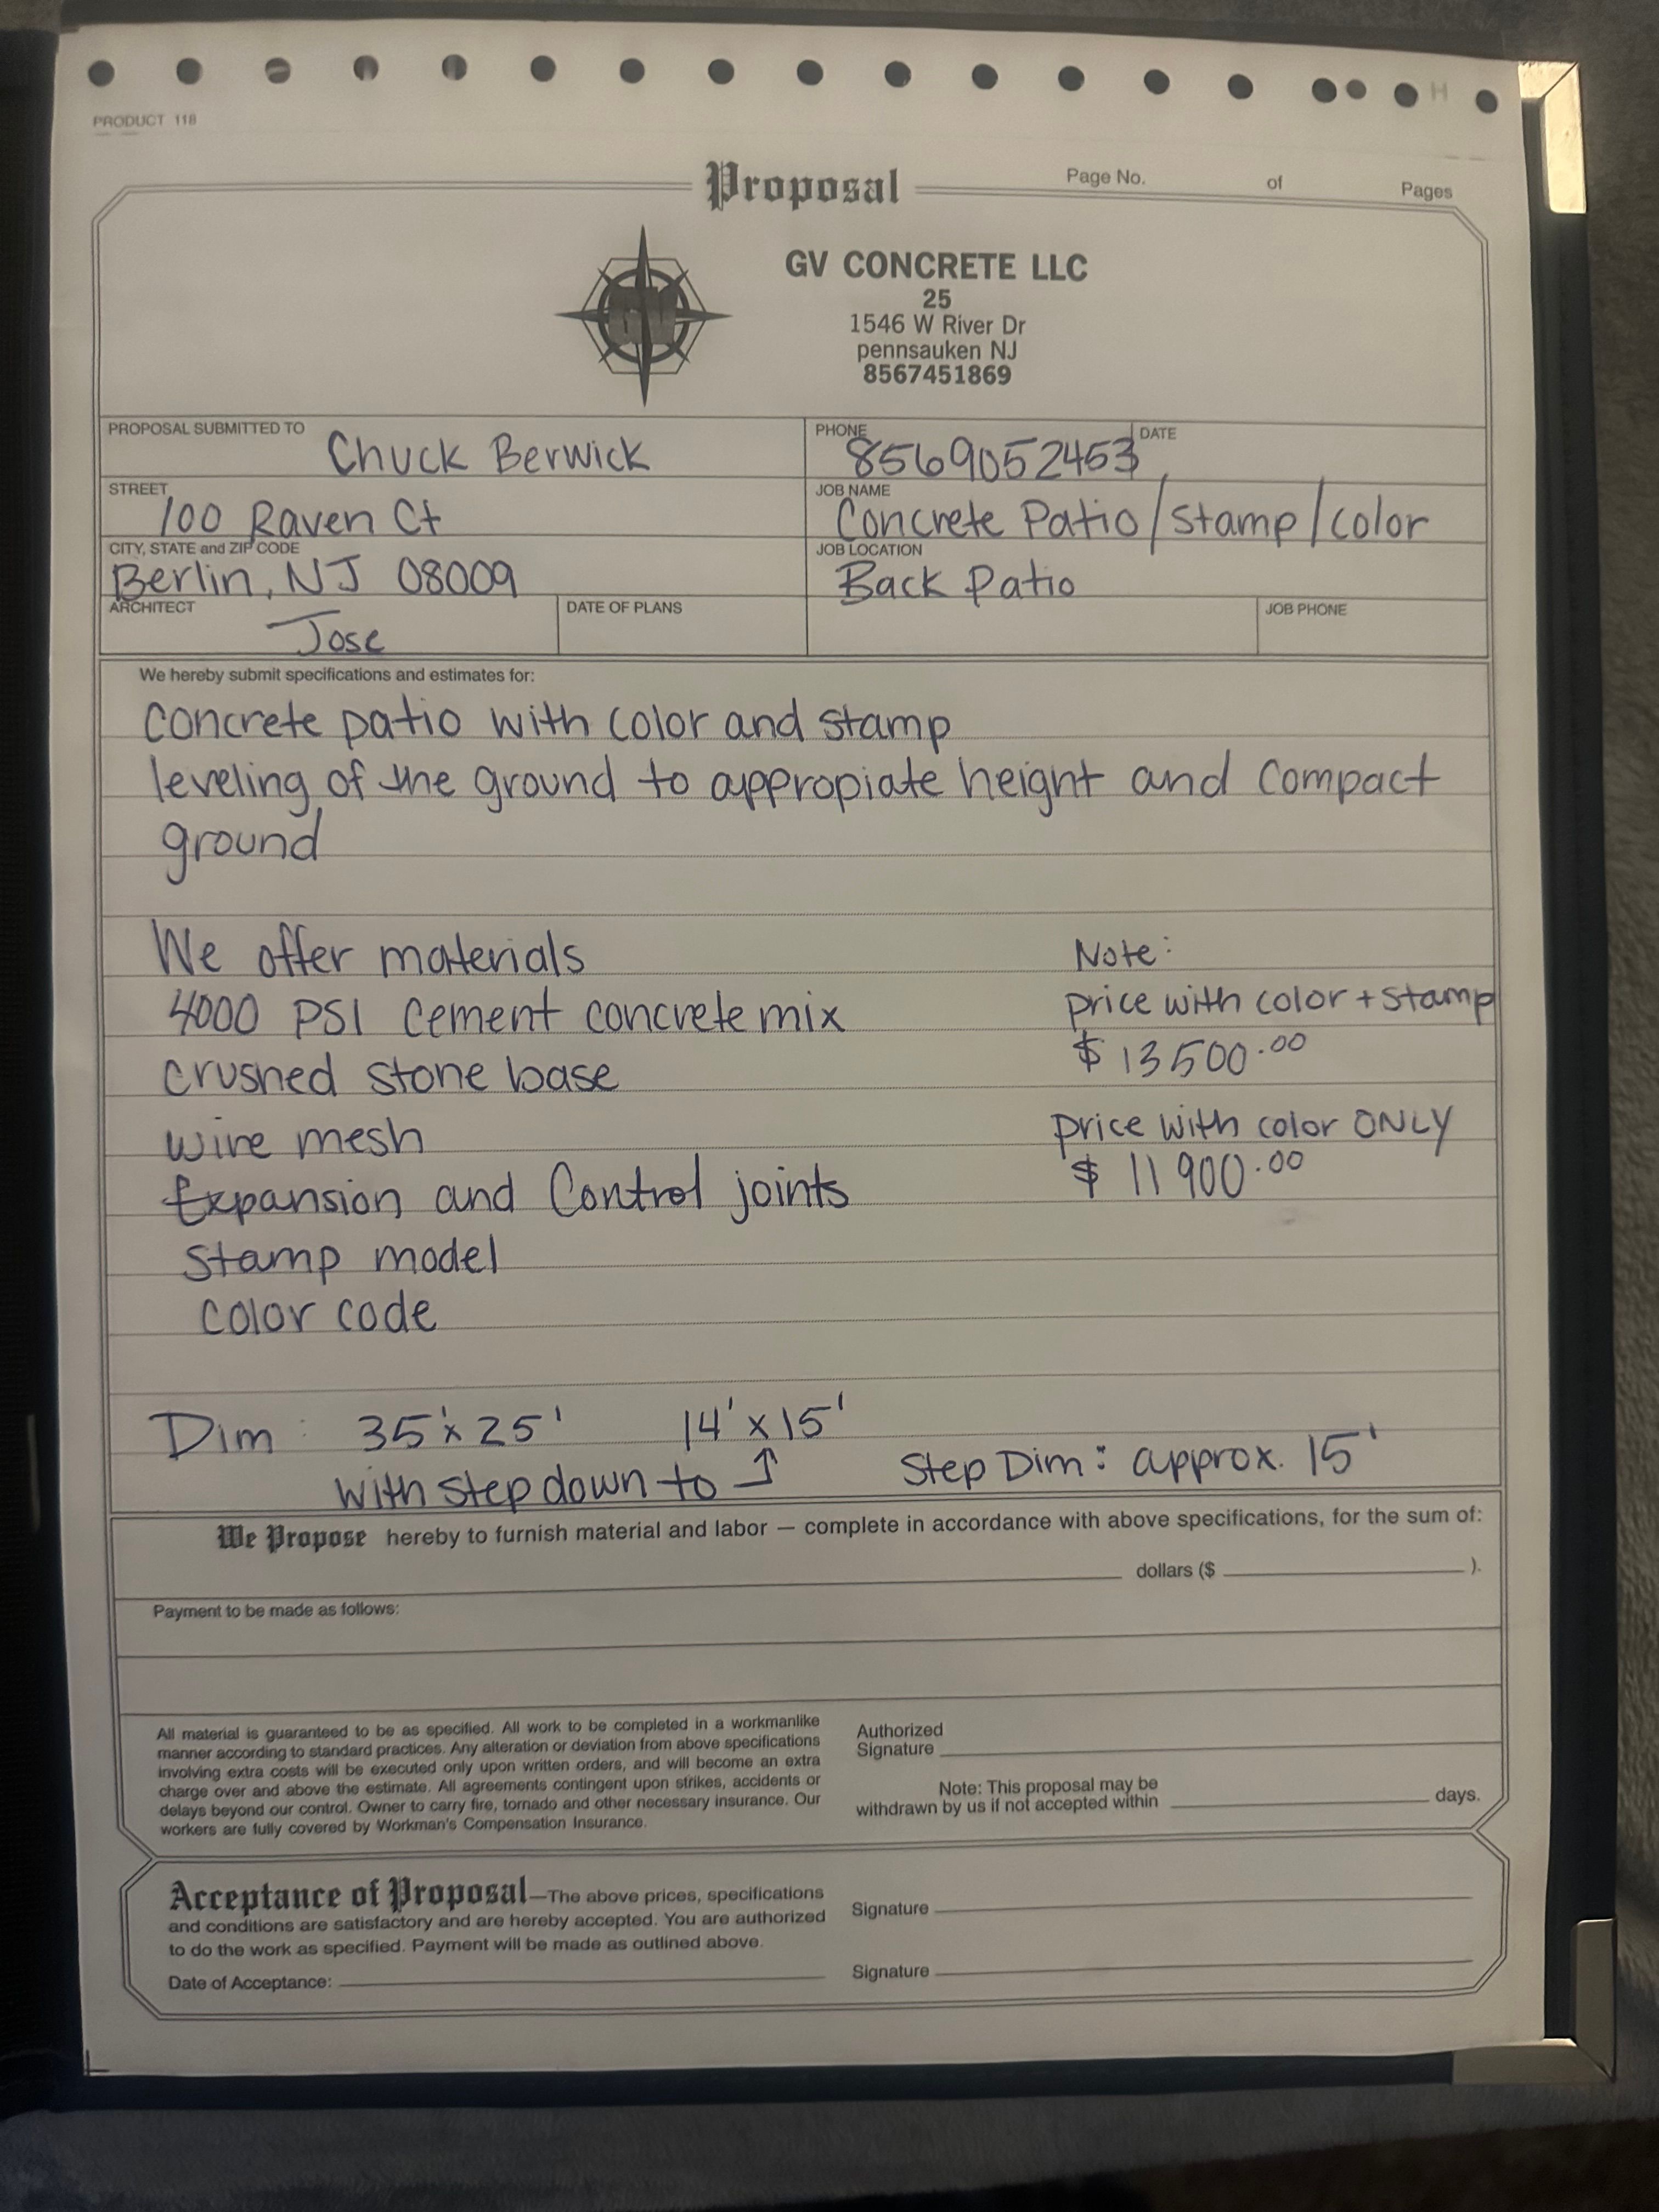 PRODUCT 118
Proposal
Page No. of Pages
GV
GV CONCRETE LLC
25
1546 W River Dr
pennsauken NJ
8567451869
PROPOSAL SUBMITTED TO Chuck Berwick
PHONE 8569052453
DATE
STREET 100 Raven Ct
JOB NAME Concrete Patio/stamp/color
CITY, STATE and ZIP CODE Berlin, NJ 08009
JOB LOCATION Back Patio
ARCHITECT Jose
DATE OF PLANS
JOB PHONE
We hereby submit specifications and estimates for:
concrete patio with color and stamp
leveling of the ground to appropiate height and compact
ground
We offer materials
4000 PSI cement concrete mix
crushed stone base
wire mesh
Expansion and Control joints
stamp model
color code
Note:
price with color + stamp
$ 13500.00
price with color ONLY
$ 11900.00
Dim: 35'x25' 14'x15'
with step down to ↑ Step Dim: approx. 15'
We Propose hereby to furnish material and labor — complete in accordance with above specifications, for the sum of:
dollars ($ ).
Payment to be made as follows:
All material is guaranteed to be as specified. All work to be completed in a workmanlike
manner according to standard practices. Any alteration or deviation from above specifications
involving extra costs will be executed only upon written orders, and will become an extra
charge over and above the estimate. All agreements contingent upon strikes, accidents or
delays beyond our control. Owner to carry fire, tornado and other necessary insurance. Our
workers are fully covered by Workman's Compensation Insurance.
Authorized
Signature
Note: This proposal may be
withdrawn by us if not accepted within days.
Acceptance of Proposal—The above prices, specifications
and conditions are satisfactory and are hereby accepted. You are authorized
to do the work as specified. Payment will be made as outlined above.
Date of Acceptance:
Signature
Signature